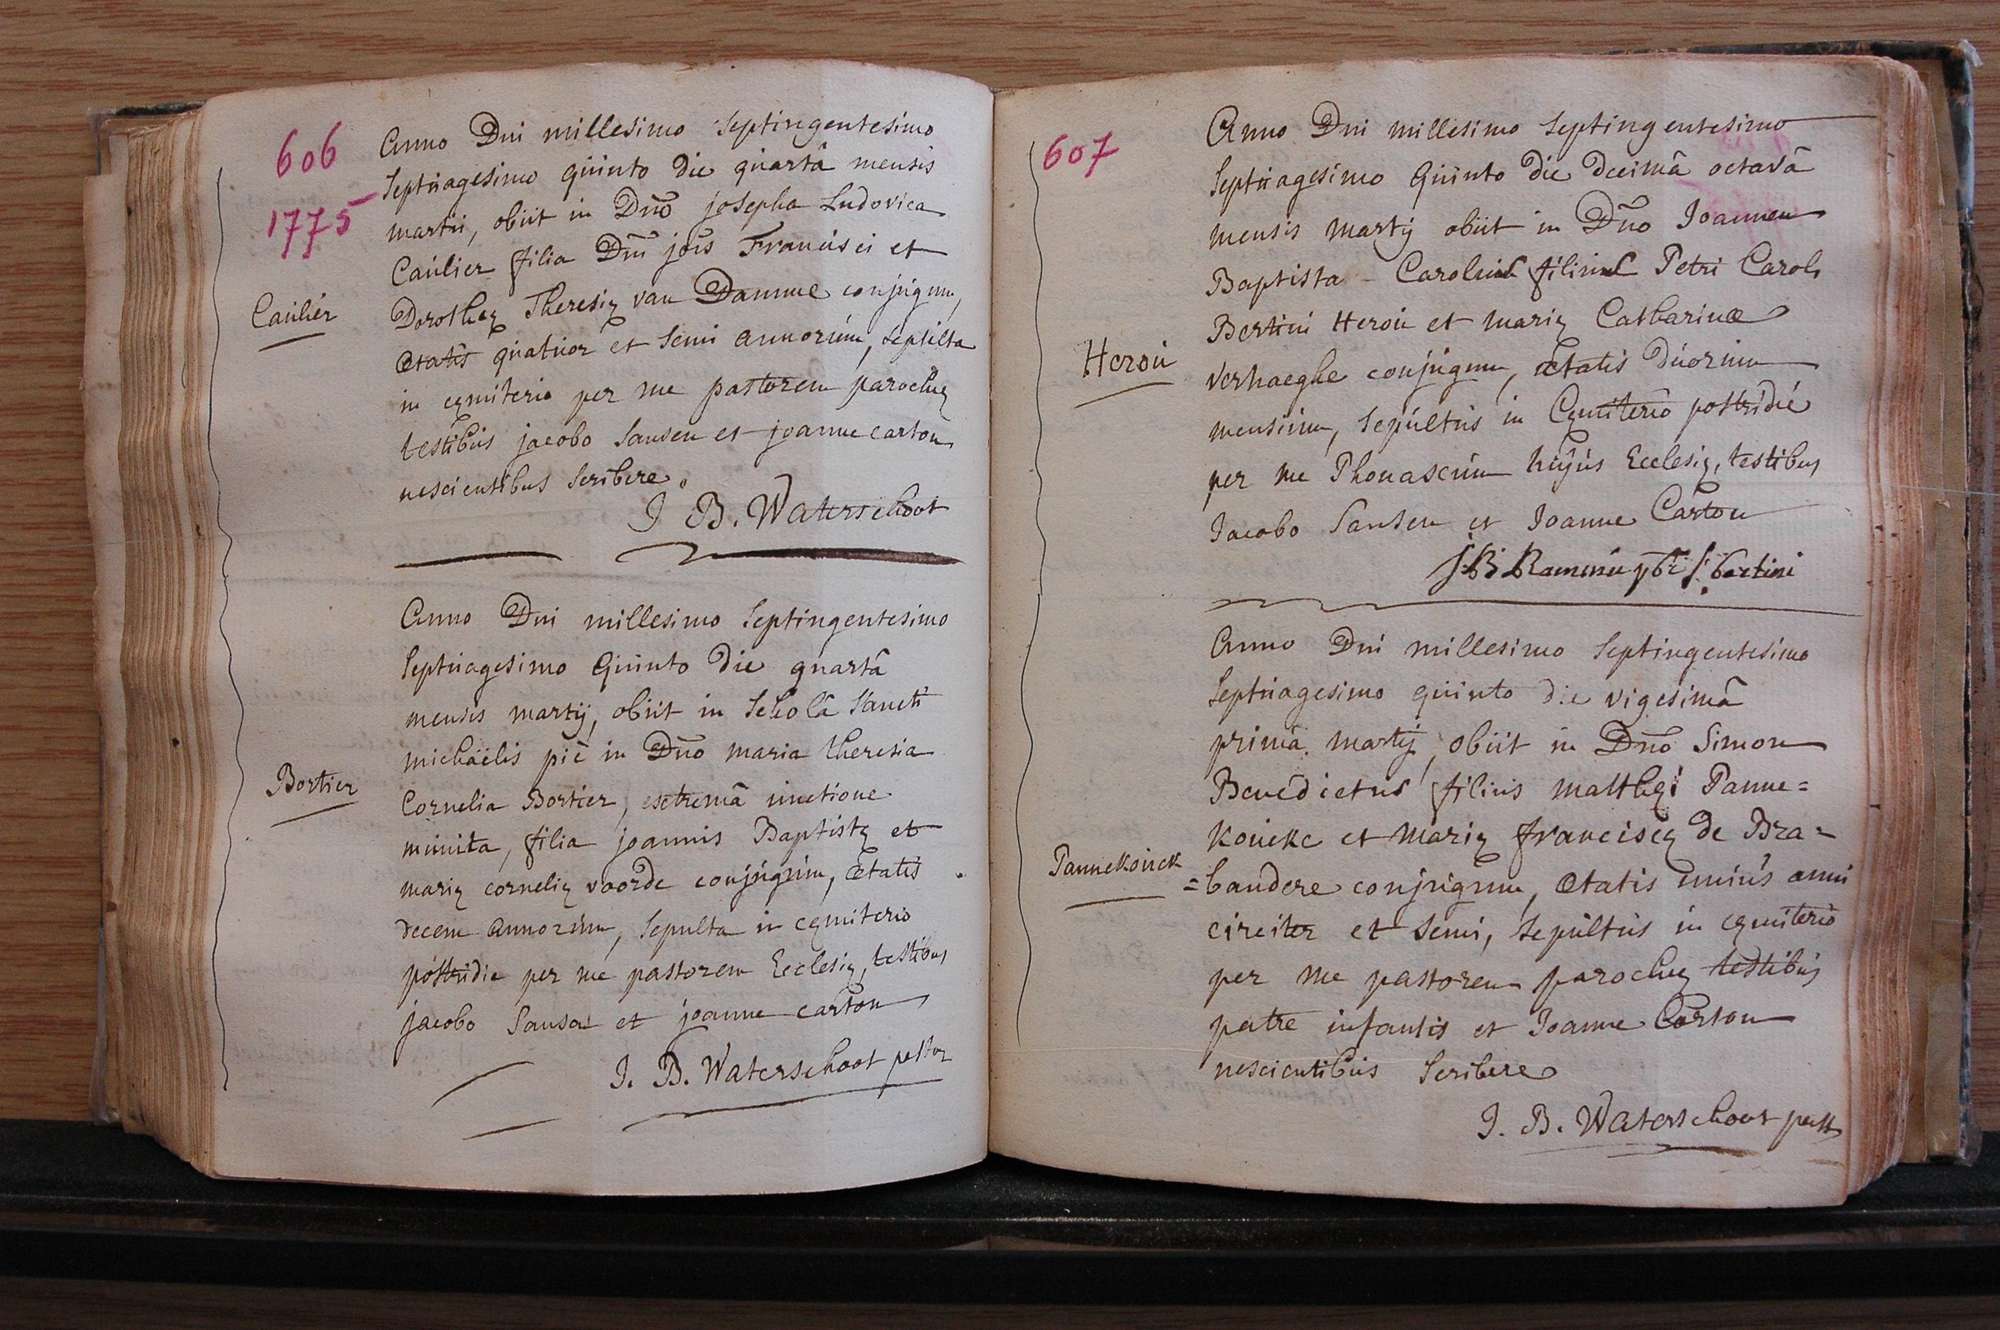 606
1775
Anno Dni millesimo Septingentesimo
Septuagesimo quinto die quartâ mensis
martii, obiit in Dno josepha Ludovica
Caulier filia Dni jois Francisci et
Caulier
Dorotheę Theresię van Damme conjugum,
ætatis quatuor et semi annorum, sepulta
in cęmiterio per me pastorem parochię
testibus jacobo Sansen et joanne carton
nescientibus scribere.
J B. Waterschoot
Anno Dni millesimo Septingentesimo
Septuagesimo Quinto die quartâ
mensis martij, obiit in Scholâ Sancti
michaëlis piè in Dno maria theresia
Bortier
Cornelia Bortier, extremâ unctione
munita, filia joannis Baptistę et
marię cornelię voorde conjugum, ætatis
decem annorum, Sepulta in cęmiterio
postridie per me pastorem Ecclesię, testibus
jacobo Sansen et joanne carton
J. B. Waterschoot pastor
607
Anno Dni millesimo Septingentesimo
Septuagesimo Quinto die decimâ octavâ
mensis martij obiit in Dno Joannes
Baptista Carolus filius Petri Caroli
Bertini Herou et marię Catharinæ
Herou
verhaeghe conjugum, ætatis duorum
mensium, sepultus in Cęmiterio postridie
per me Phonascum hujus Ecclesię, testibus
Jacobo Sansen et Joanne Carton
Anno Dni millesimo Septingentesimo
Septuagesimo quinto die vigesimâ
primâ martij, obiit in Dno Simon
Benedictus filius matthęi Panne=
kouckc et marię franciscę de Bra=
Pannekouck
=bandere conjugum, ætatis unius anni
circiter et semi, sepultus in cęmiterio
per me pastorem parochię testibus
patre infantis et Joanne Carton
nescientibus Scribere
J. B. Waterschoot past